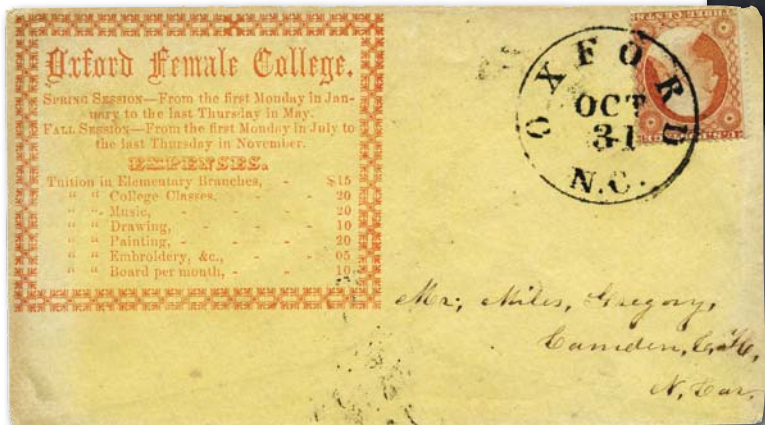 Oxford Female College.
SPRING SESSION—From the first Monday in Jan-
uary to the last Thursday in May.
FALL SESSION—From the first Monday in July to
the last Thursday in November.
EXPENSES.
Tuition in Elementary Branches, - $15
" " College Classes, - - 20
" " Music, - - - 20
" " Drawing, - - - 10
" " Painting, - - - 20
" " Embroidery, &c., - - 05
" " Board per month, - - 10
OXFORD
OCT
31
N.C.
THREE CENTS
Mr; Miles, Gregory,
Camden, C, H,
N, Car,